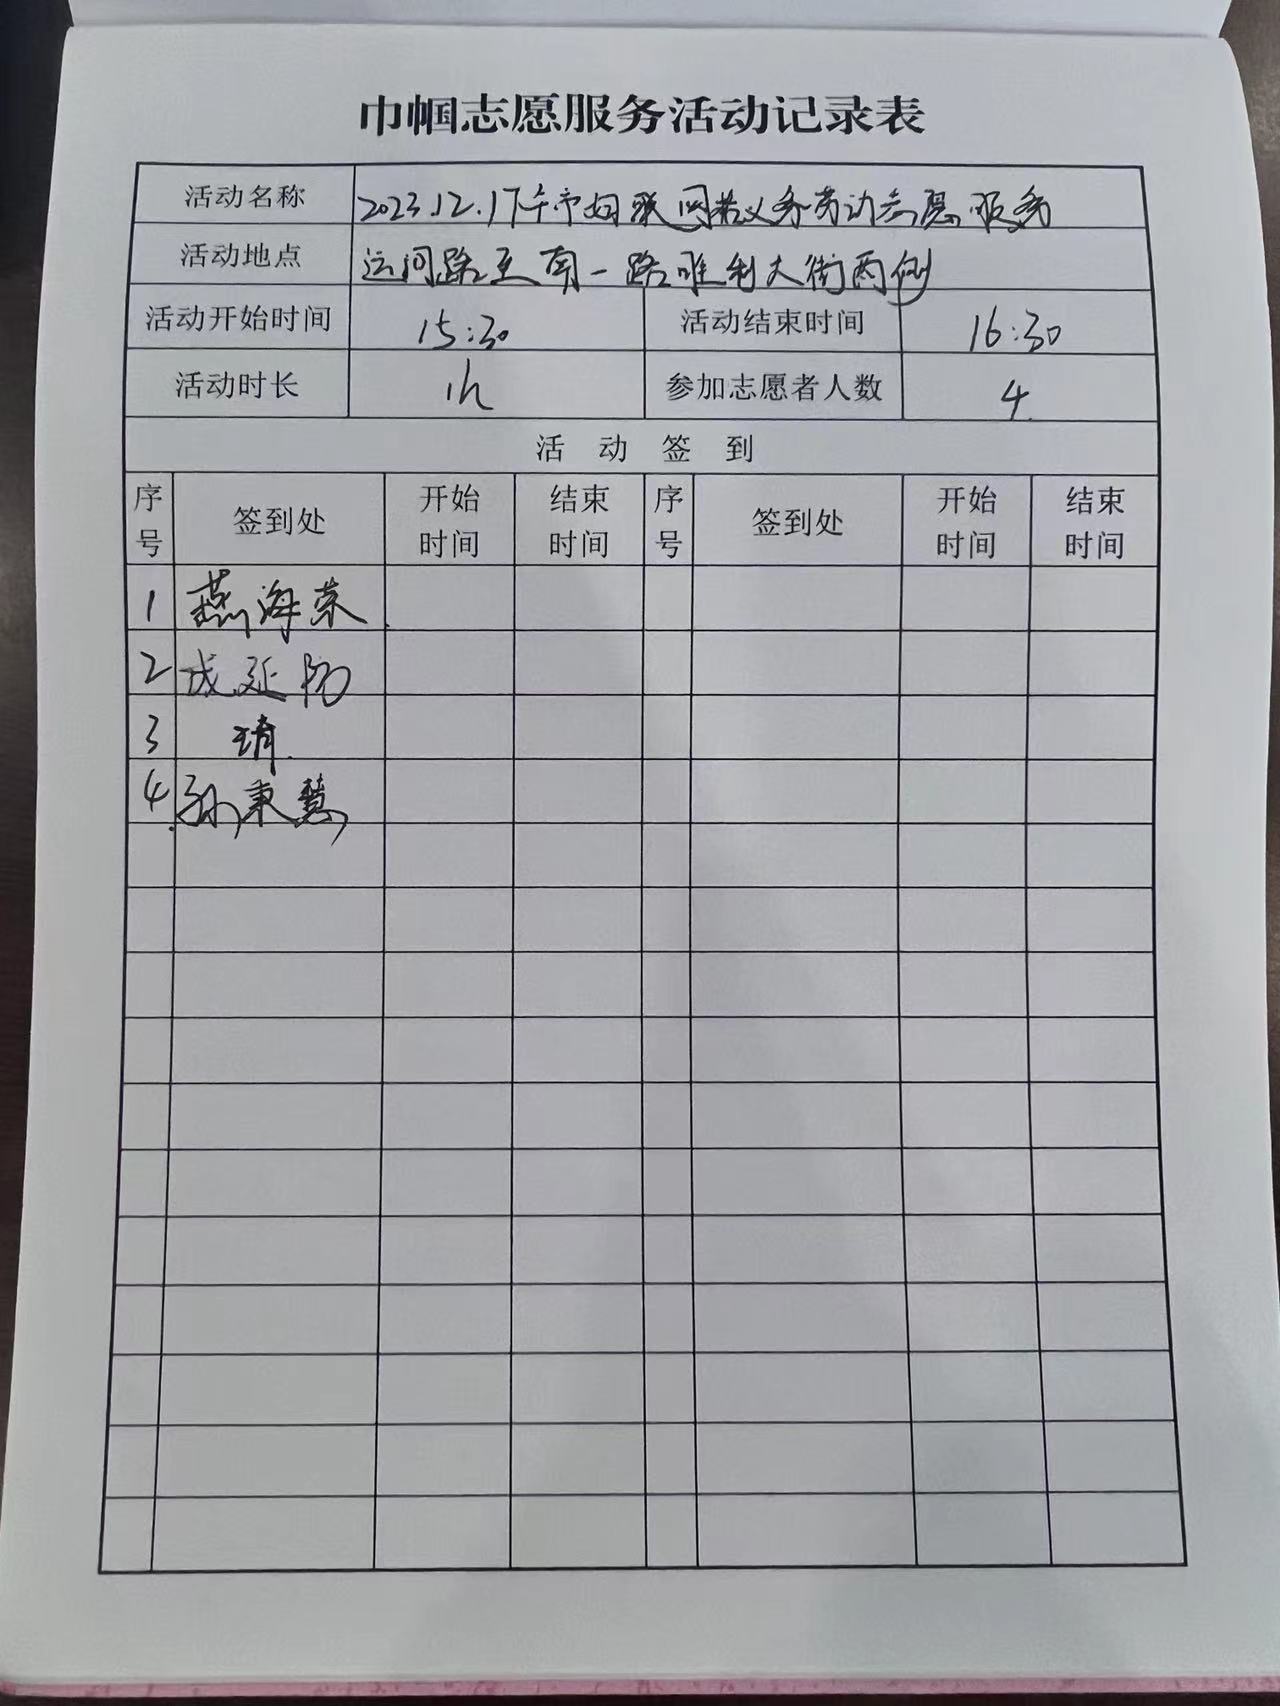 巾帼志愿服务活动记录表
活动名称 2023.12.17下午市妇联网格义务劳动志愿服务
活动地点 运河路至南一路唯利大街两侧
活动开始时间 15:30 活动结束时间 16:30
活动时长 1h 参加志愿者人数 4
活动签到
序号 签到处 开始时间 结束时间 序号 签到处 开始时间 结束时间
1 燕海荣
2 成延
3
4 孙秉慧